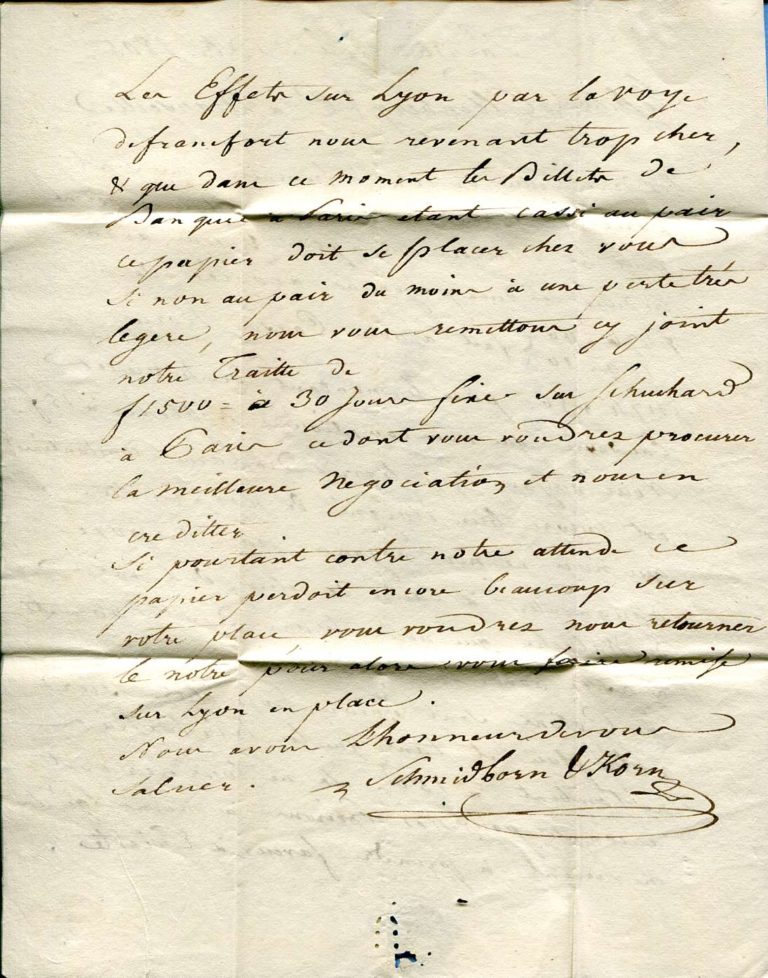 Les Effets sur Lyon par la voye
de francfort nous revenant trop cher,
& que dans ce moment les Billets de
Banque à Paris etant cassi au pair
ce papier doit se placer chez vous
si non au pair du moins à une perte très
legere, nous vous remettons cy joint
notre Traitte de
f1500 = à 30 Jours fixe sur Schuchard
à Paris ce dont vous voudrez procurer
la meilleure Negociation, et nous en
creditter
Si pourtant contre notre attende ce
papier perdoit encore beaucoup sur
votre place, vous voudrez nous retourner
le notre pour alors vous faire remise
sur Lyon en place.
Nous avons L'honneur de vous
saluer. Schmidborn & Korn